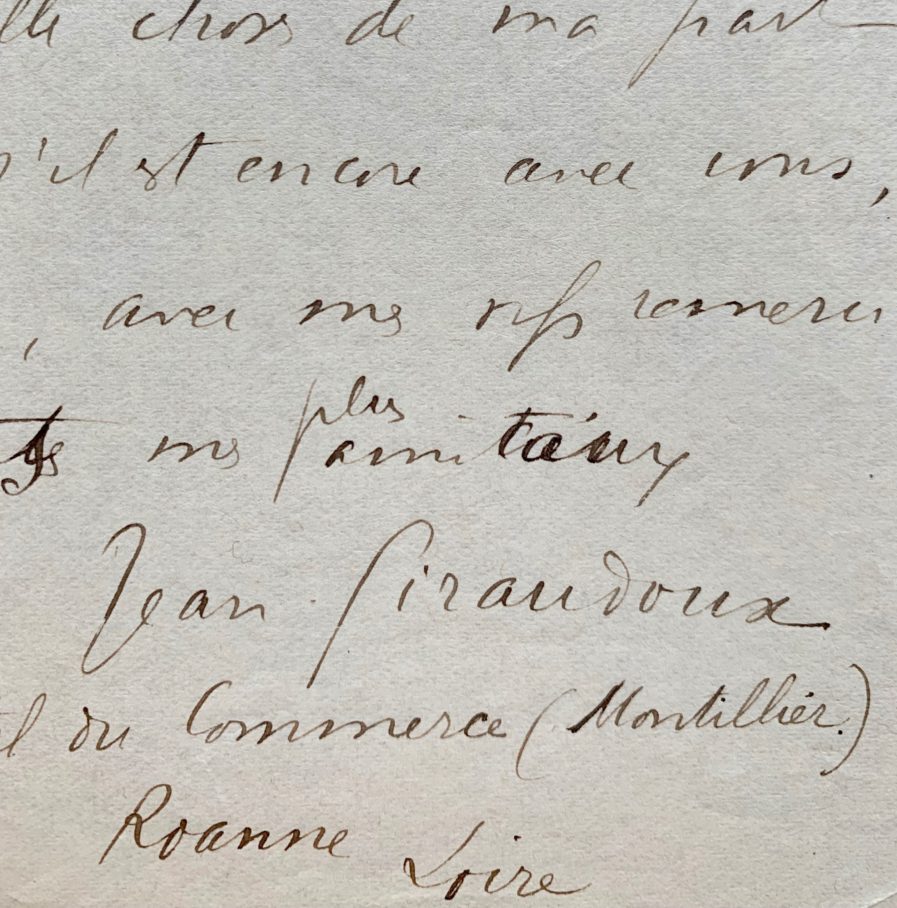 lle chose de ma part
s'il est encore avec vous,
, avec mes resp
mes plus amitéux
Jean Giraudoux
l du Commerce (Montillier.)
Roanne Loire